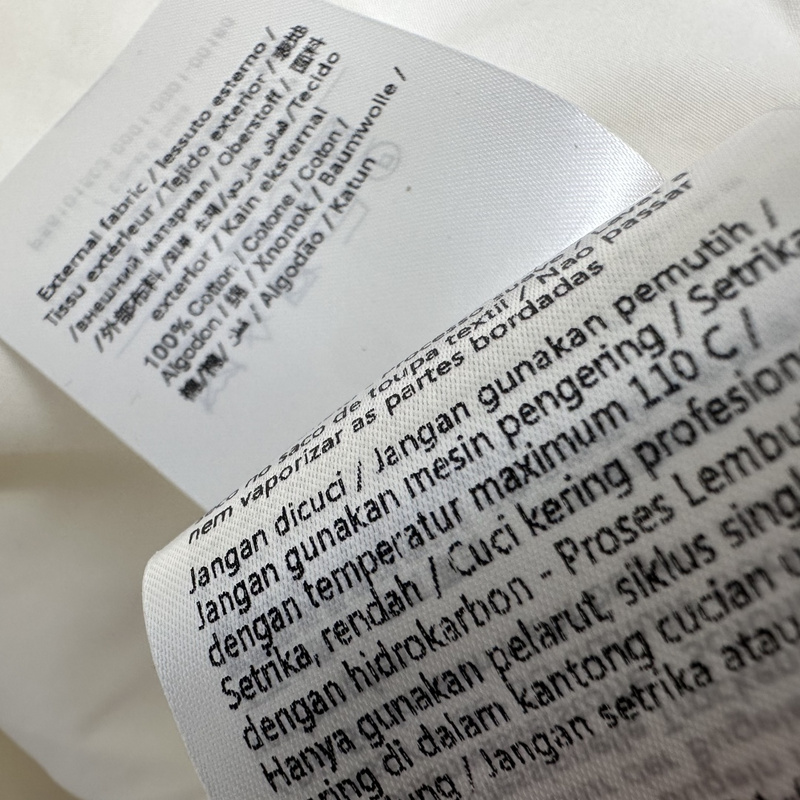 External fabric / Tessuto esterno /
Tissu extérieur / Tejido exterior / 表地
/внешний материал / Oberstoff / 面料
/外部布料 / قماش خارجي /Tecido
exterior / Kain eksternal
100% Cotton / Cotone / Coton /
Algodon / 綿 / Хлопок / Baumwolle /
棉/棉/ قطن / Algodão / Katun
no saco de roupa textil / Não passar
nem vaporizar as partes bordadas
Jangan dicuci / Jangan gunakan pemutih /
Jangan gunakan mesin pengering / Setrika
dengan temperatur maximum 110 C /
Setrika, rendah / Cuci kering profesion
dengan hidrokarbon - Proses Lembu
Hanya gunakan pelarut, siklus sing
ring di dalam kantong cucian
/ Jangan setrika atau